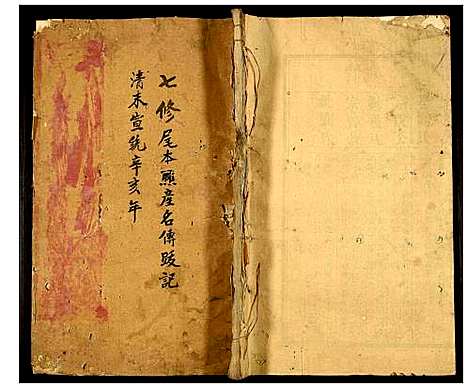 七修尾本照産名傳跋記
清末宣統辛亥年